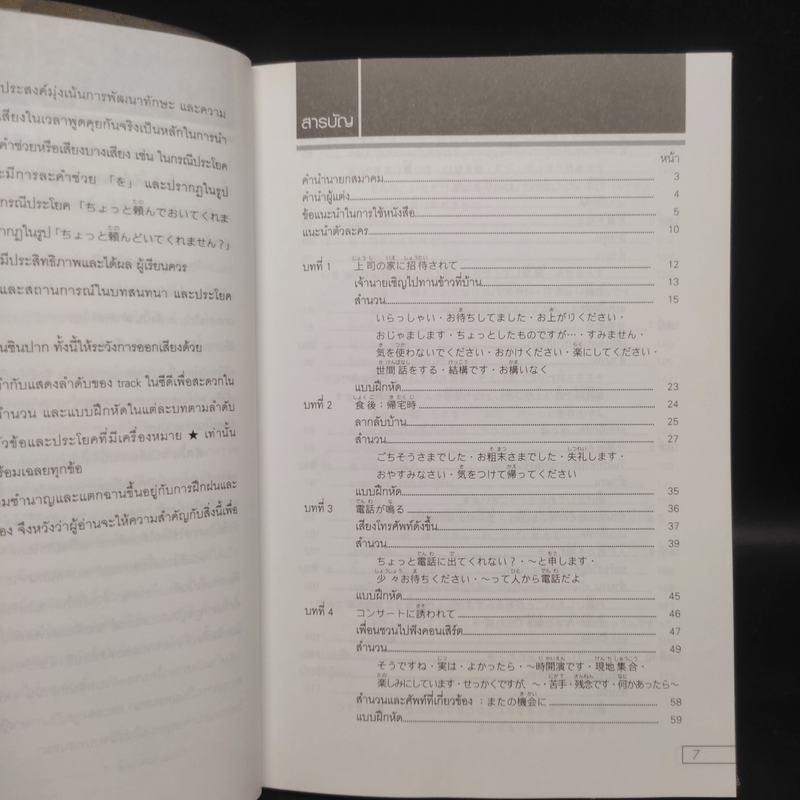 ประสงค์มุ่งเน้นการพัฒนาทักษะ และความ
เสียงในเวลาพูดคุยกันจริงเป็นหลักในการนำ
คำช่วยหรือเสียงบางเสียง เช่น ในกรณีประโยค
ะมีการละคำช่วย 「を」 และปรากฏในรูป
กรณีประโยค「ちょっと頼んでおいてくれま
รากฏในรูป「ちょっと頼んどいてくれません?」
มีประสิทธิภาพและได้ผล ผู้เรียนควร
และสถานการณ์ในบทสนทนา และประโยค
นชินปาก ทั้งนี้ให้ระวังการออกเสียงด้วย
กำกับแสดงลำดับของ track ในซีดีเพื่อสะดวกใน
สำนวน และแบบฝึกหัดในแต่ละบทตามลำดับ
หัวข้อและประโยคที่มีเครื่องหมาย ★ เท่านั้น
ร้อมเฉลยทุกข้อ
วามชำนาญและแตกฉานขึ้นอยู่กับการฝึกฝนและ
อง จึงหวังว่าผู้อ่านจะให้ความสำคัญกับสิ่งนี้เพื่อ
สารบัญ
หน้า
คำนำนายกสมาคม 3
คำนำผู้แต่ง 4
ข้อแนะนำในการใช้หนังสือ 5
แนะนำตัวละคร 10
บทที่ 1 上司の家に招待されて 12
เจ้านายเชิญไปทานข้าวที่บ้าน 13
สำนวน 15
いらっしゃい・お待ちしてました・お上がりください・
おじゃまします・ちょっとしたものですが…・すみません・
気を使わないでください・おかけください・楽にしてください・
世間話をする・結構です・お構いなく
แบบฝึกหัด 23
บทที่ 2 食後:帰宅時 24
ลากลับบ้าน 25
สำนวน 27
ごちそうさまでした・お粗末さまでした・失礼します・
おやすみなさい・気をつけて帰ってください
แบบฝึกหัด 35
บทที่ 3 電話が鳴る 36
เสียงโทรศัพท์ดังขึ้น 37
สำนวน 39
ちょっと電話に出てくれない?・〜と申します・
少々お待ちください・〜って人から電話だよ
แบบฝึกหัด 45
บทที่ 4 コンサートに誘われて 46
เพื่อนชวนไปฟังคอนเสิร์ต 47
สำนวน 49
そうですね・実は・よかったら・〜時開演です・現地集合・
楽しみにしています・せっかくですが、〜・苦手・残念です・何かあったら〜
สำนวนและศัพท์ที่เกี่ยวข้อง : またの機会に 58
แบบฝึกหัด 59
7